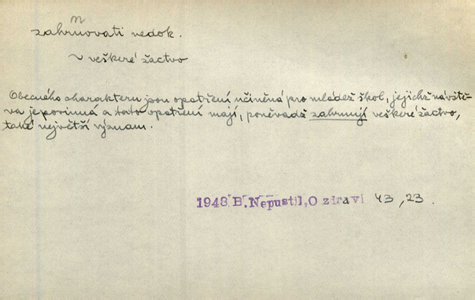 n
zahrňovati nedok.
~ veškeré žactvo
Obecného charakteru jsou opatření učiněná pro mládež škol, jejichž návště-
va je povinná a tato opatření mají, poněvadž zahrnují veškeré žactvo,
také největší význam.
1948 B. Nepustil, O zdraví 43, 23.